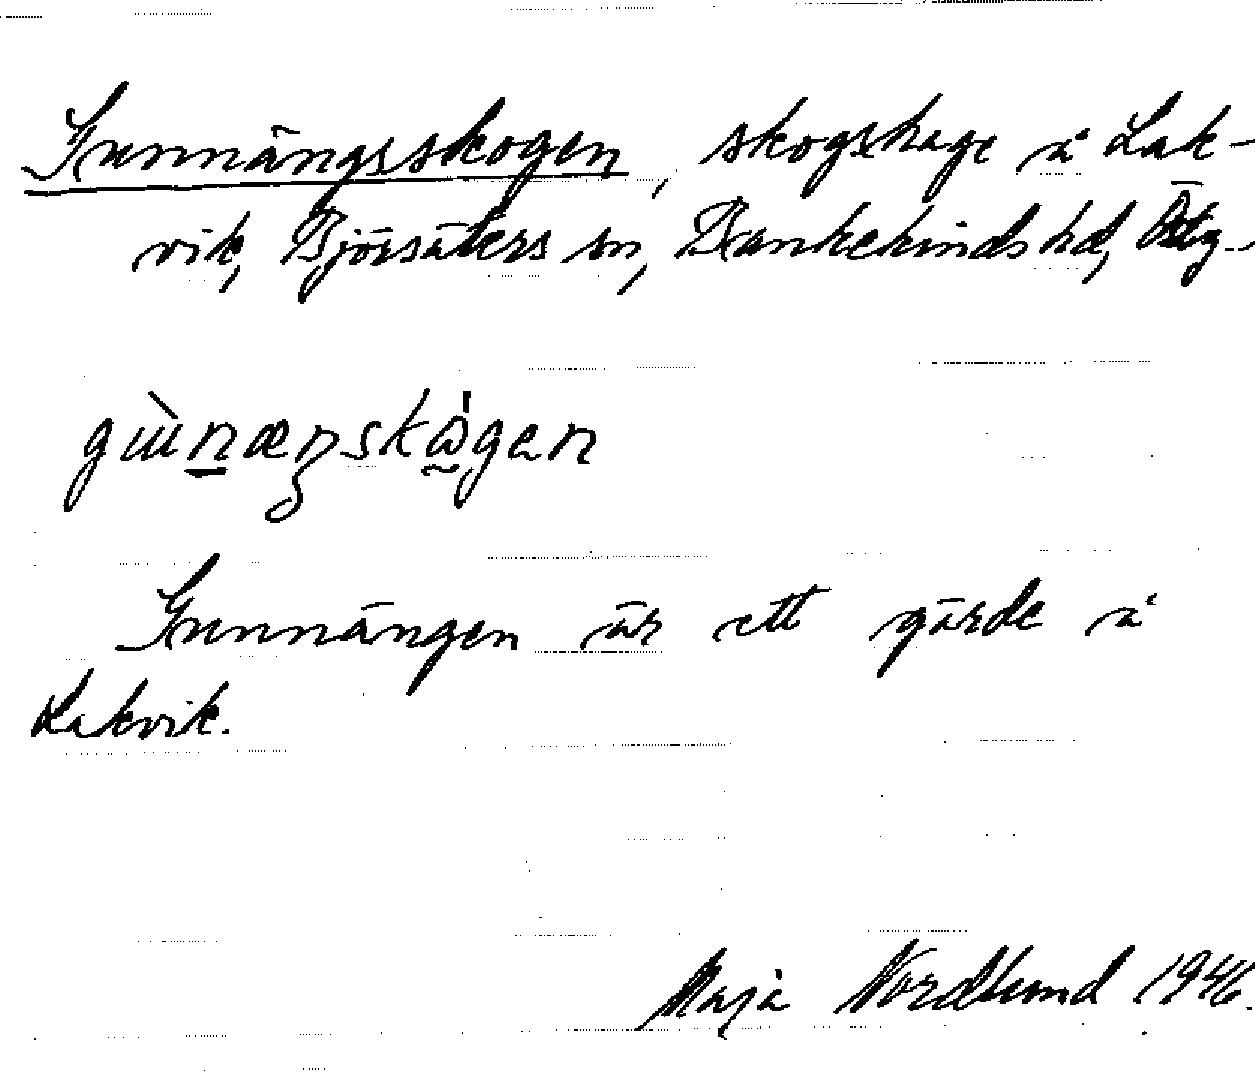 Gunnängsskogen, skogshage å Lak-
vik, Björsäters sn, Bankekinds hd, Östg.
Gunnängen är ett gärde å
Lakvik.
Maja Nordlund 1946.